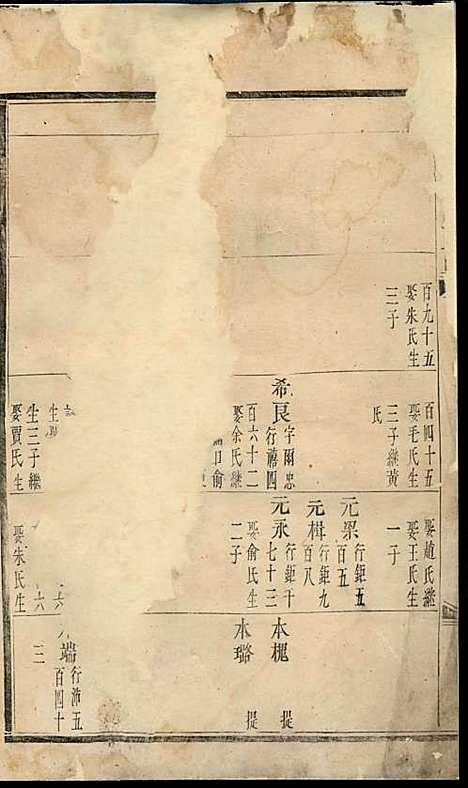 百九十五
娶朱氏生
三子
百四十五
娶毛氏生
三子繼黃
氏
希良 字爾忠
行禮四
百六十二
娶余氏繼
俞
生
生三子繼
娶賈氏生
娶趙氏繼
娶王氏生
一子
元杲 行鉅五
百五
元楫 行鉅九
百八
元永 行鉅十
七十三
娶俞氏生
二子
六
六
娶朱氏生
本梶 提
本璐 提
端 行沛五
百四十
三